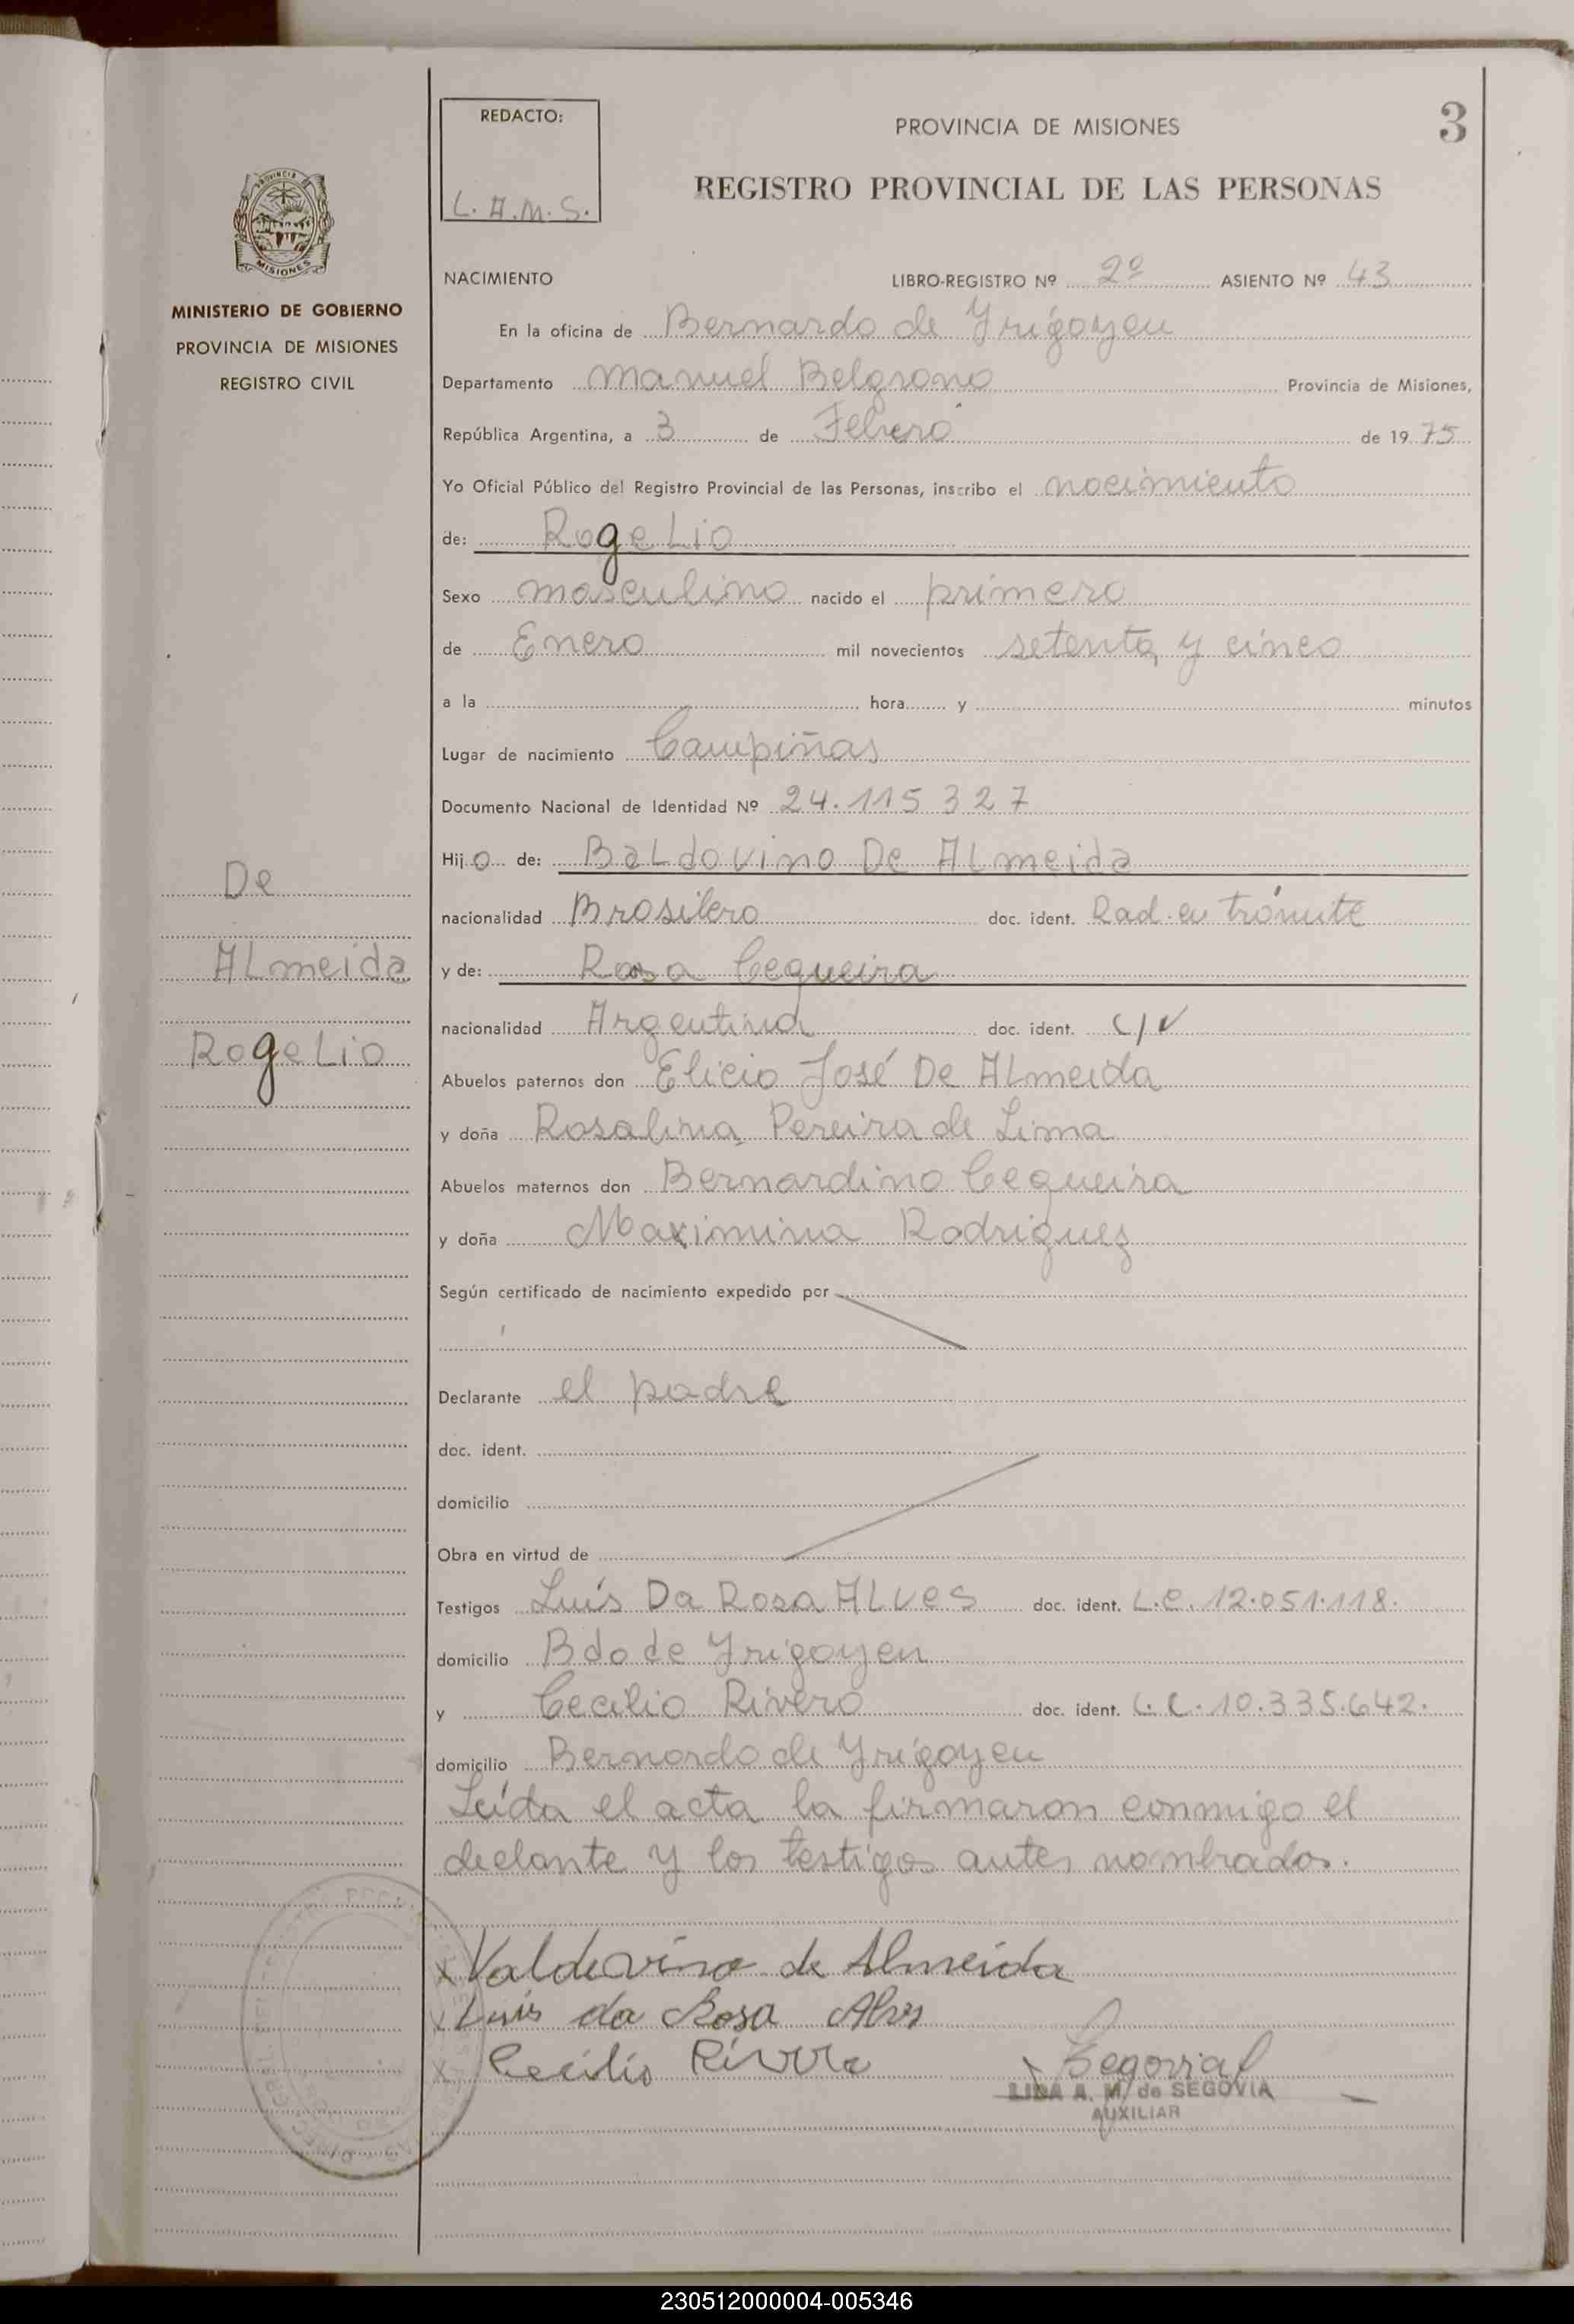 REDACTO:
L. A. M. S.
PROVINCIA DE MISIONES
3
REGISTRO PROVINCIAL DE LAS PERSONAS
PROVINCIA
MISIONES
MINISTERIO DE GOBIERNO
PROVINCIA DE MISIONES
REGISTRO CIVIL
NACIMIENTO LIBRO-REGISTRO Nº 2º ASIENTO Nº 43
En la oficina de Bernardo de Yrigoyen
Departamento Manuel Belgrano Provincia de Misiones,
República Argentina, a 3 de Febrero de 1975
Yo Oficial Público del Registro Provincial de las Personas, inscribo el nacimiento
de: Rogelio
Sexo masculino nacido el primero
de Enero mil novecientos setenta y cinco
a la hora y minutos
Lugar de nacimiento Campiñas
Documento Nacional de Identidad Nº 24.115 327
Hijo de: Baldovino De Almeida
nacionalidad Brasilero doc. ident. Rad. en trámite
y de: Rosa Cequeira
nacionalidad Argentina doc. ident.
Abuelos paternos don Elicio José De Almeida
y doña Rosalina Pereira de Lima
Abuelos maternos don Bernardino Cequeira
y doña Maximina Rodriguez
Según certificado de nacimiento expedido por
Declarante el padre
doc. ident.
domicilio
Obra en virtud de
Testigos Luis Da Rosa Alves doc. ident. L.E. 12.051.118.
domicilio Bdo de Yrigoyen
y Cecilio Rivero doc. ident. 10.335.642.
domicilio Bernardo de Yrigoyen
Leída el acta la firmaron conmigo el
declante y los testigos antes nombrados.
De
Almeida
Rogelio
x Valdevino de Almeida
x Luis da Rosa Alves
x Cecilio Rivero
Segovia
LIDA A. M. de SEGOVIA
AUXILIAR
230512000004-005346